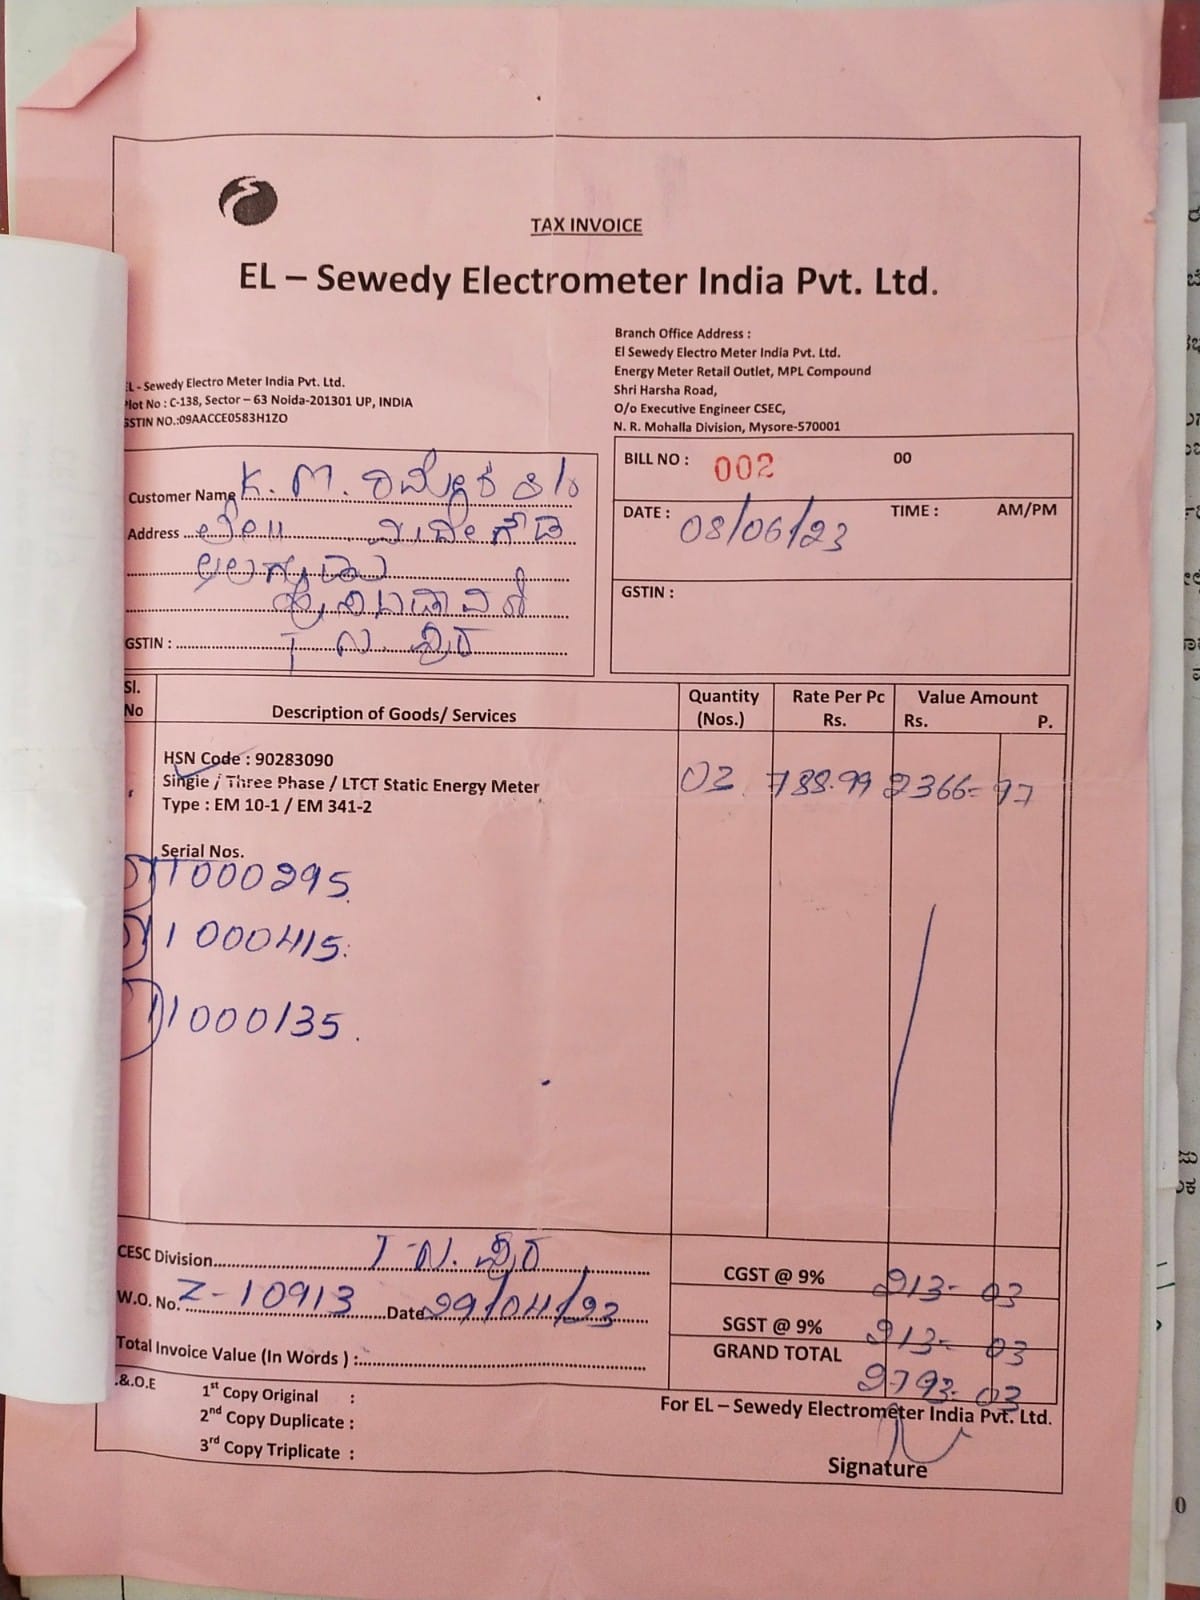 TAX INVOICE
EL – Sewedy Electrometer India Pvt. Ltd.
Branch Office Address :
El Sewedy Electro Meter India Pvt. Ltd.
Energy Meter Retail Outlet, MPL Compound
Shri Harsha Road,
O/o Executive Engineer CSEC,
N. R. Mohalla Division, Mysore-570001
L - Sewedy Electro Meter India Pvt. Ltd.
lot No : C-138, Sector – 63 Noida-201301 UP, INDIA
GSTIN NO.:09AACCE0583H1ZO
Customer Name K. M.
Address
GSTIN :
BILL NO : 002 00
DATE : 08/06/23 TIME : AM/PM
GSTIN :
Sl. No Description of Goods/ Services Quantity (Nos.) Rate Per Pc Rs. Value Amount Rs. P.
HSN Code : 90283090
Single / Three Phase / LTCT Static Energy Meter 03 788.99 2366=97
Type : EM 10-1 / EM 341-2
Serial Nos.
11000295.
11000415.
11000135.
CESC Division
W.O. No. Z-10913 Date 29/04/23
Total Invoice Value (In Words ) :
CGST @ 9% 213- 03
SGST @ 9% 213- 03
GRAND TOTAL 2793-03
.&.O.E
1st Copy Original :
2nd Copy Duplicate :
3rd Copy Triplicate :
For EL – Sewedy Electrometer India Pvt. Ltd.
Signature